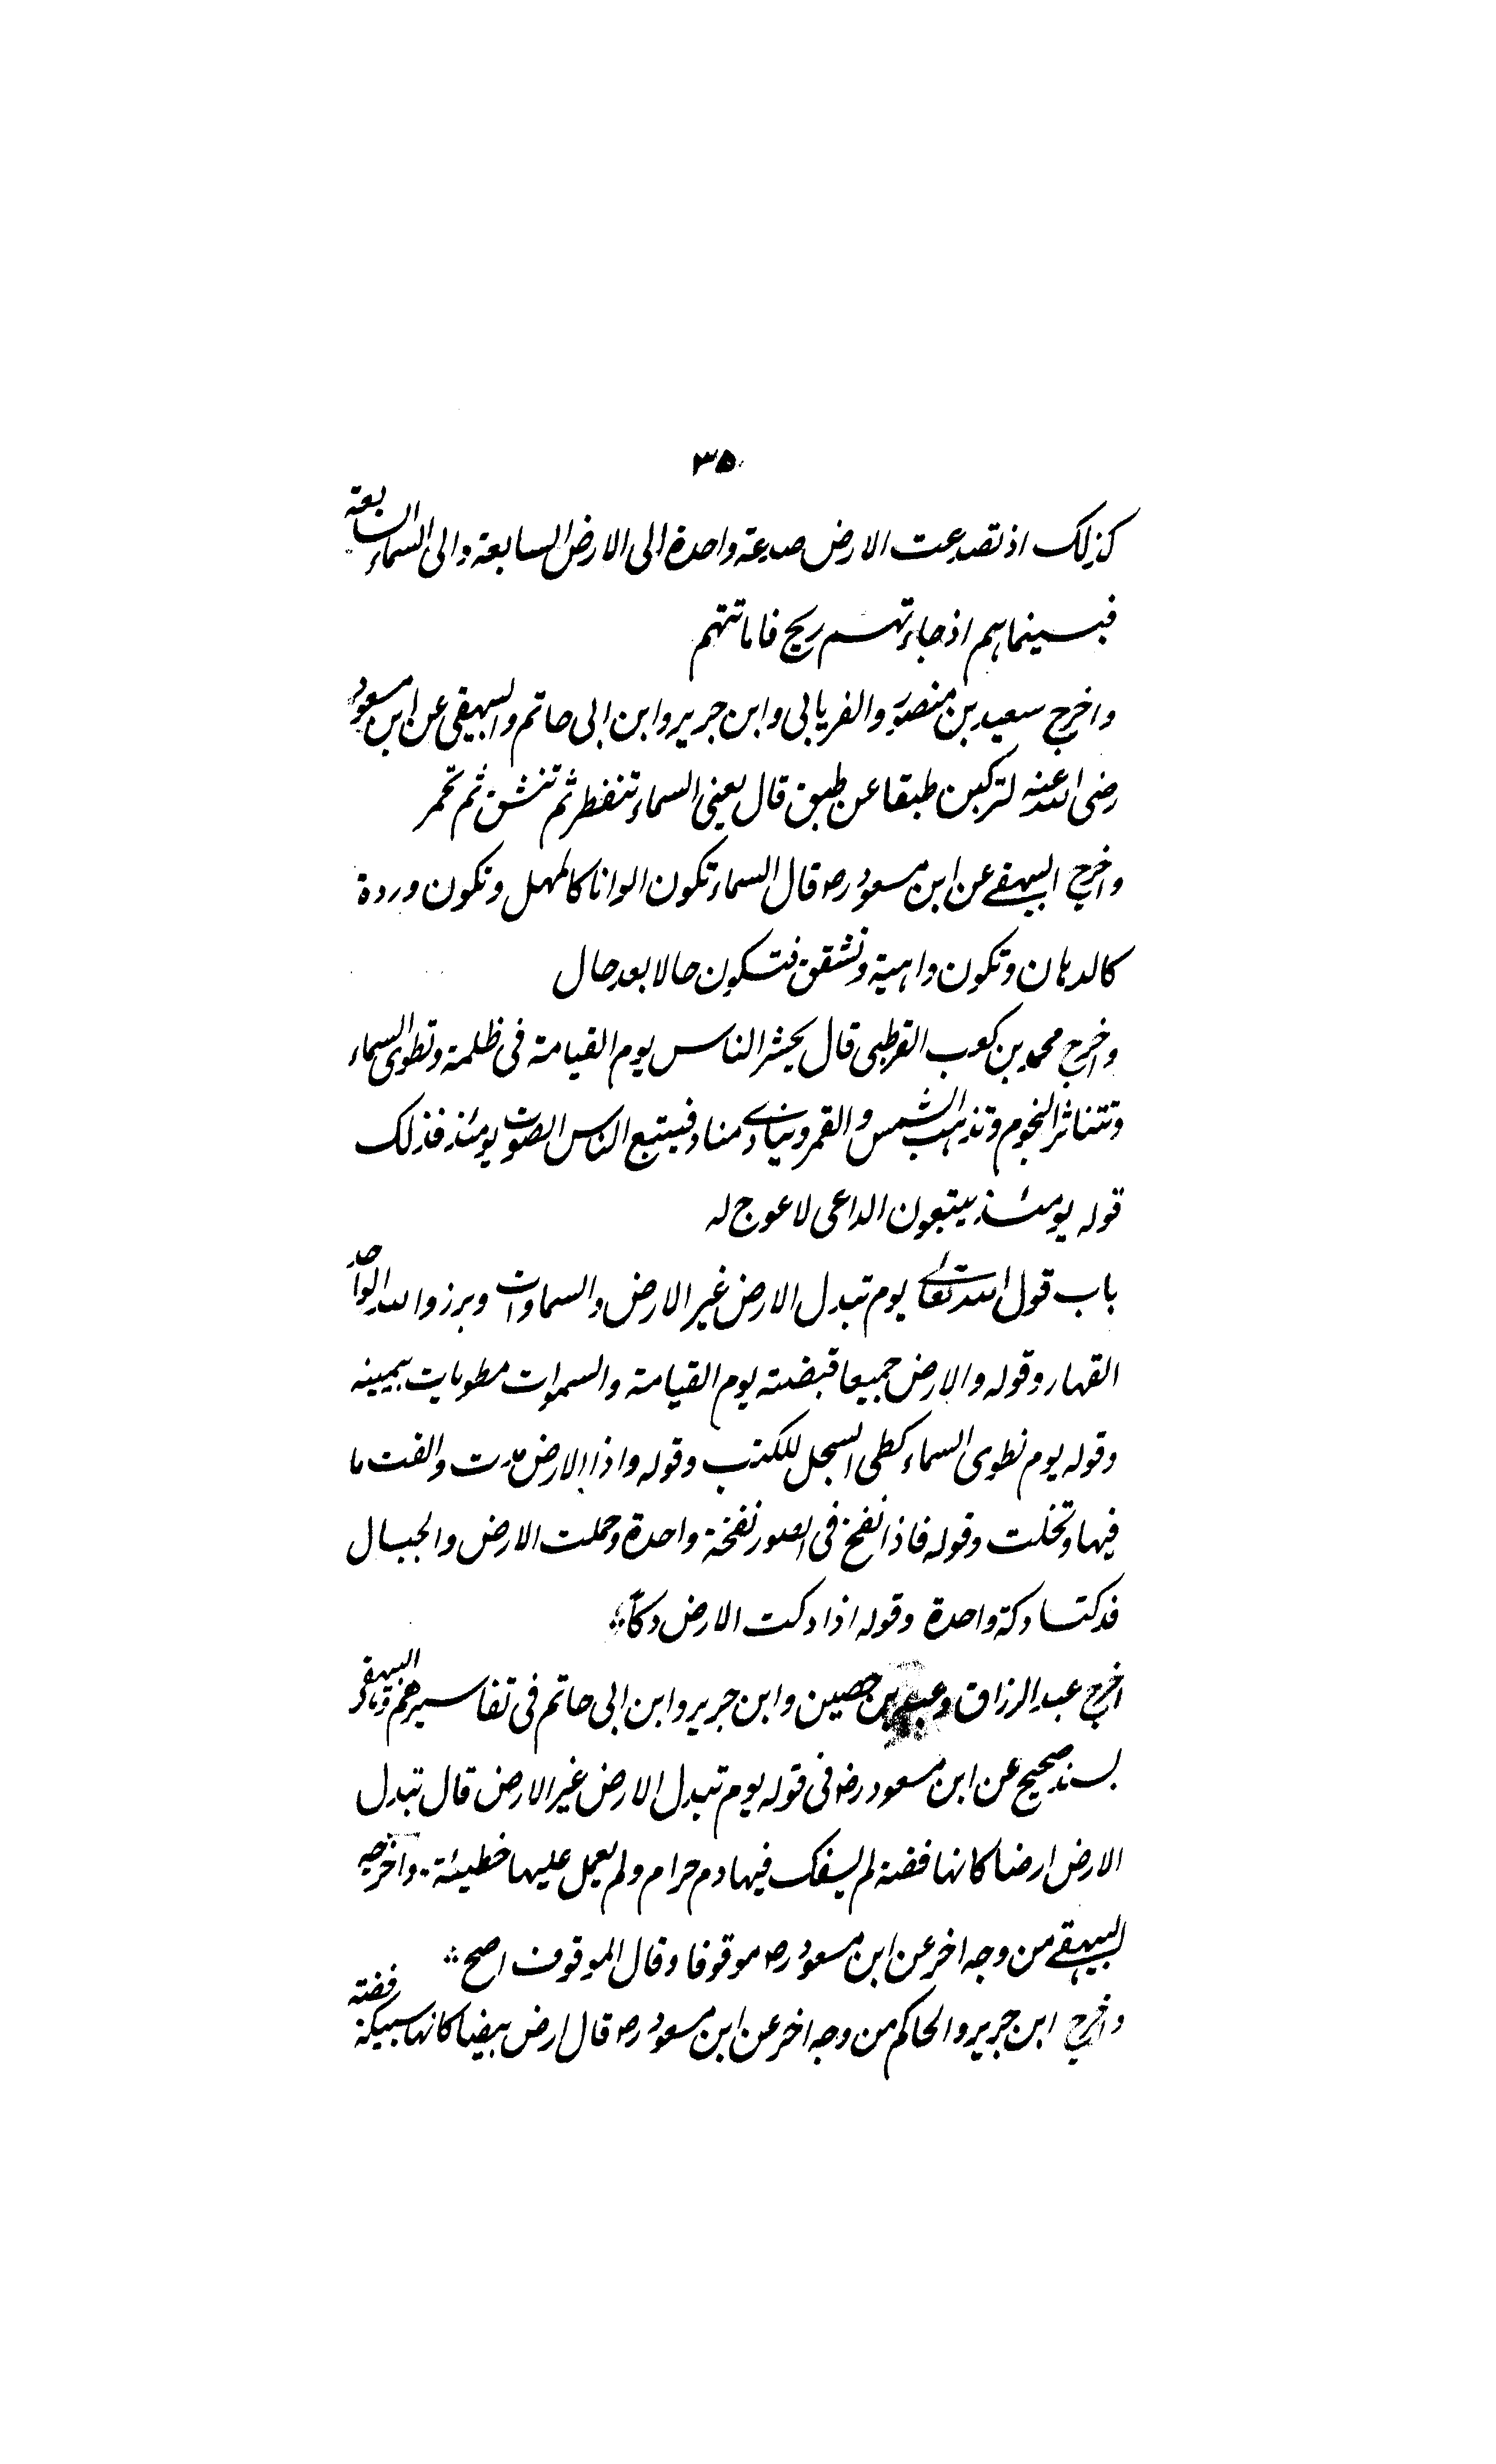 ۳۵
كذلك اذ تصدعت الارض صدعة واحدة الى الارض السابعة والى السماء السابعة
فبينما هم اذ جاءتهم ريح فاماتتهم
واخرج سعيد بن منصور والفريابى وابن جرير وابن ابى حاتم والبيهقى عن ابن مسعود
رضى الله عنه لتركبن طبقا عن طبق قال يعنى السماء تنفطر ثم تنشق ثم تحمر
واخرج البيهقے عن ابن مسعود رض قال السماء تكون الوانا كالمهل وتكون وردة
كالدهان وتكون واهية وتشقق فتكون حالا بعد حال
واخرج محمد بن كعب القرظى قال يحشر الناس يوم القيامة فى ظلمة وتطوى السماء
وتتناثر النجوم وتذهب الشمس والقمر وينادے مناد فيتبع الناس الصوت يومئذ فذلك
قوله يومئذ يتبعون الداعى لا عوج له
باب قول الله تعالے يوم تبدل الارض غير الارض والسماوات وبرزوا لله الواحد
القهار وقوله والارض جميعا قبضته يوم القيامة والسموات مطويات بيمينه
وقوله يوم نطوى السماء كطى السجل للكتب وقوله واذا الارض مدت والقت ما
فيها وتخلت وقوله فاذا نفخ فى الصور نفخة واحدة وحملت الارض والجبال
فدكتا دكة واحدة وقوله اذا دكت الارض دكاً
اخرج عبد الرزاق وعبد بن حصين وابن جرير وابن ابى حاتم فى تفاسيرهم والبيهقى
بسند صحيح عن ابن مسعود رض فى قوله يوم تبدل الارض غير الارض قال تبدل
الارض ارضا كانها فضة لم يسفك فيها دم حرام ولم يعمل عليها خطيئة ۔ واخرجه
البيهقے من وجه اخر عن ابن مسعود رض موقوفا وقال الموقوف اصح
واخرج ابن جرير والحاكم من وجه اخر عن ابن مسعود رض قال ارض بيضا كانها سبيكة فضة